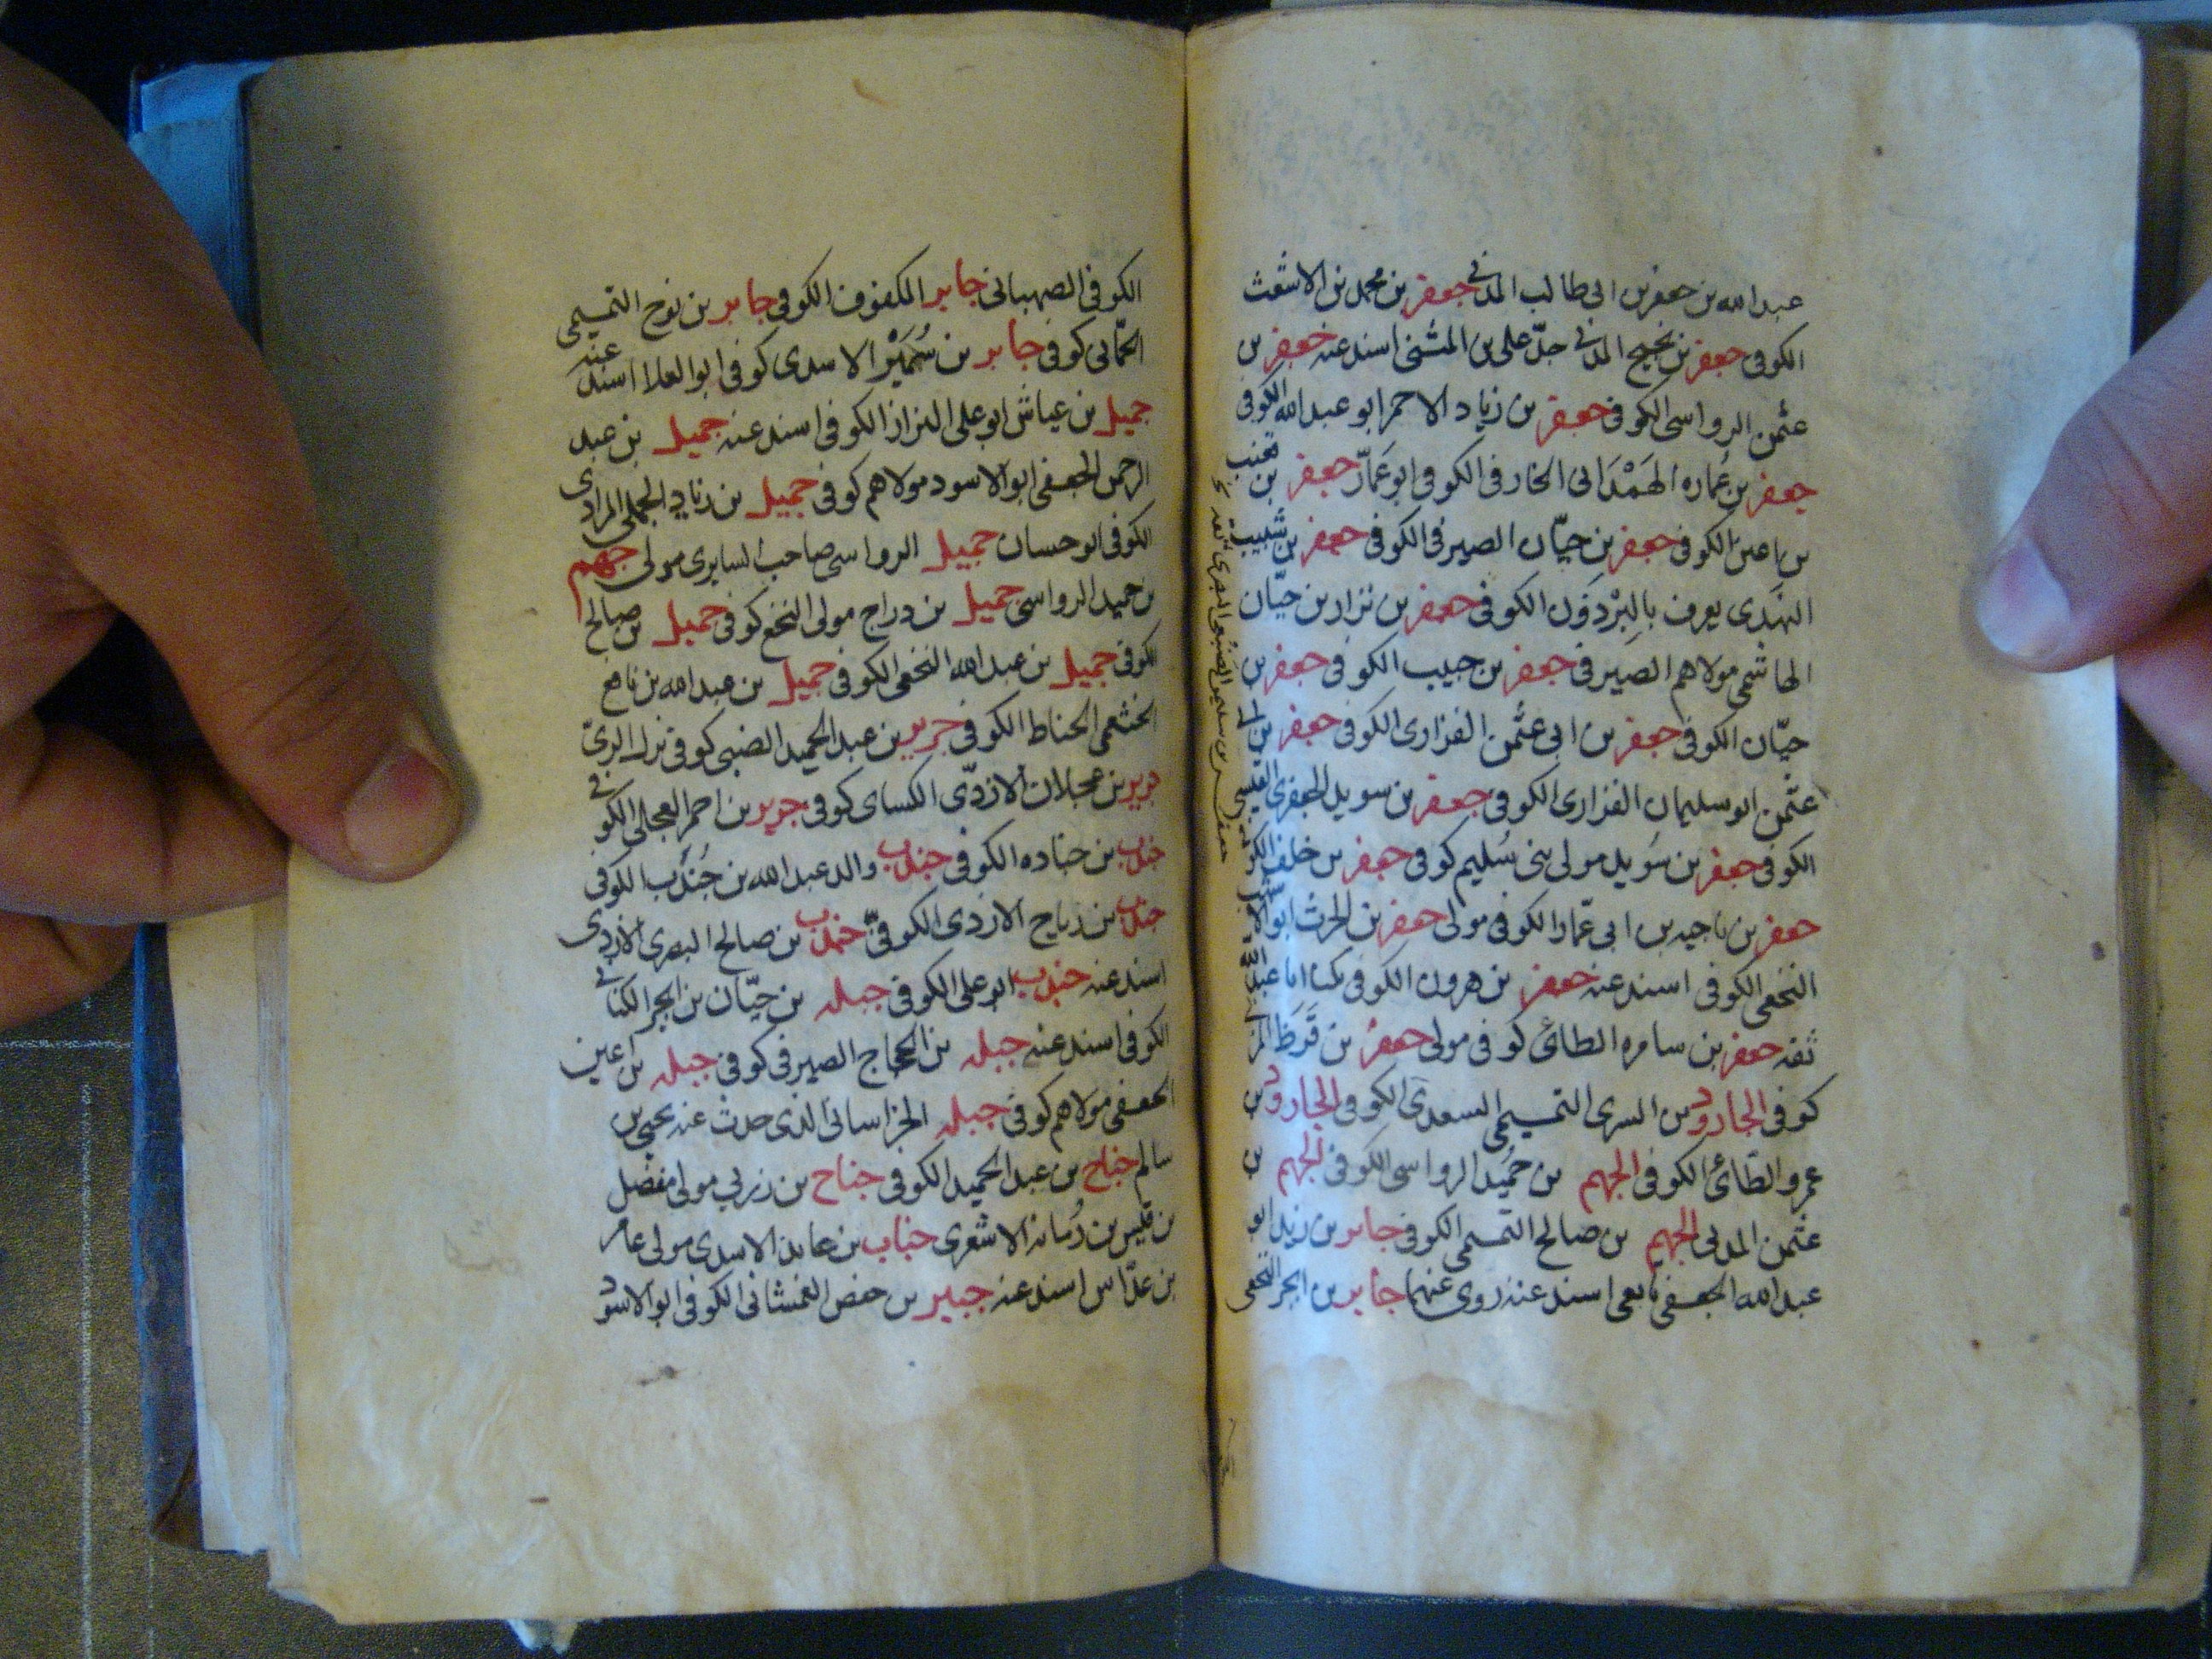 عبد الله بن جعفر بن ابى طالب المدنى جعفر بن محمد بن الاشعث
الكوفى جعفر بن نجيح المدنى جدّ على بن المدينى اسند عنه جعفر بن
عثمن الرواسى الكوفى جعفر بن زياد الاحمر ابو عبد الله الكوفى
جعفر بن عُماره الهَمْدَانى الخارفى الكوفى ابو عَمَّار جعفر بن قعنب
بن اعين الكوفى جعفر بن حيّان الصيرفى الكوفى جعفر بن شبيب
النهدى يعرف بالبِرْدَون الكوفى جعفر بن نزار بن حيّان
الهاشمى مولاهم الصيرفى جعفر بن حبيب الكوفى جعفر بن
حيّان الكوفى جعفر بن ابى عثمن الفزارى الكوفى جعفر بن
عثمن ابو سليمان الفزارى الكوفى جعفر بن سويد الجعفرى القيسى
الكوفى جعفر بن سُويد مولى بنى سُليم كوفى جعفر بن خلف الكوفى
جعفر بن ناجيه بن ابى عمّار الكوفى مولى جعفر بن الحرث ابو الاشتر
النخعى الكوفى اسند عنه جعفر بن هرون الكوفى يكنا ابا عبد الله
ثقه جعفر بن سامره الطائى كوفى مولى جعفر بن قَرَظ
كوفى الجارود بن السرى التميمى السعدى الكوفى الجارود بن
عمرو الطّائى الكوفى الجهم بن حُميد الرواسى الكوفى الجهم بن
عثمن المدنى الجهم بن صالح التميمى الكوفى جابر بن يزيد ابو
عبد الله الجعفى تابعى اسند عنه روى عنهما جابر بن ابجر النخعى
جعفر بن سليمن الضُبَعى البصرى ثقه
الكوفى الصهبانى جابر المكفوف الكوفى جابر بن نوح التميمى
الحمّانى كوفى جابر بن سُمَيْر الاسدى كوفى ابو العلا اسند عنه
جميل بن عياش ابو على البزاز الكوفى اسند عنه جميل بن عبد
الرحمن الجعفى ابو الاسود مولاهم كوفى جميل بن زياد الجملى المرادى
الكوفى ابو حسان جميل الرواسى صاحب السابرى مولى جهم
بن حميد الرواسى جميل بن دراج مولى النخع كوفى جميل بن صالح
الكوفى جميل بن عبد الله النخعى الكوفى جميل بن عبد الله بن نافع
الخثعمى الحناط الكوفى جرير بن عبد الحميد الضبى كوفى نزل الرىّ
جرير بن عجلان الازدّى الكساى كوفى جرير بن احمر العجلى الكوفى
جندب بن جناده الكوفى جندب والد عبد الله بن جُندب الكوفى
جندب بن رياح الازدى الكوفىّ جندب بن صالح البصرى الازدى
اسند عنه جندب ابو على الكوفى جبله بن حيّان بن ابجر الكنانى
الكوفى اسند عنه جبله بن الحجاج الصيرفى كوفى جبله بن اعين
الجعفى مولاهم كوفى جبله الخراسانى الذى حدث عنه يحيى بن
سالم جناح بن عبد الحميد الكوفى جناح بن رزبى مولى مفضل
بن قيس بن رُمانه الاشعرى جناب بن عايذ الاسدى مولى عامر
بن عدّاس اسند عنه جبير بن حفص الغمشانى الكوفى ابو الاسود